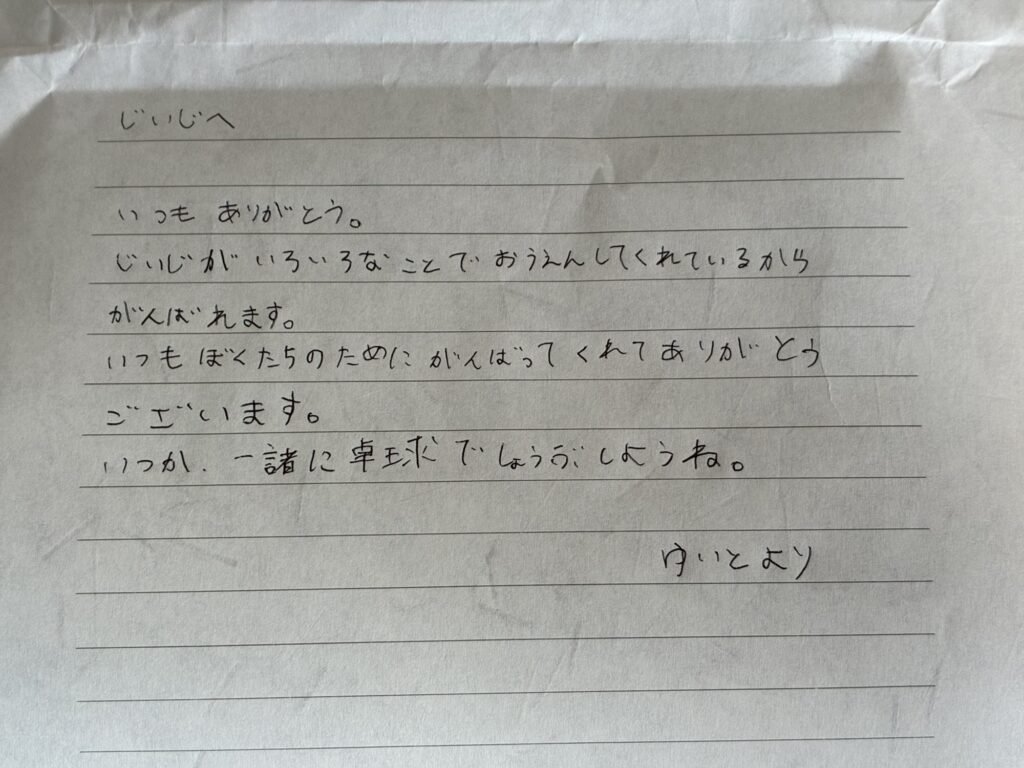 じいじへ
いつも ありがとう。
じいじが いろいろなことで おうえんしてくれているから
がんばれます。
いつも ぼくたちのために がんばって くれて ありがとう
ございます。
いつか、一諸に 卓球で しょうぶ しようね。
ゆいとより